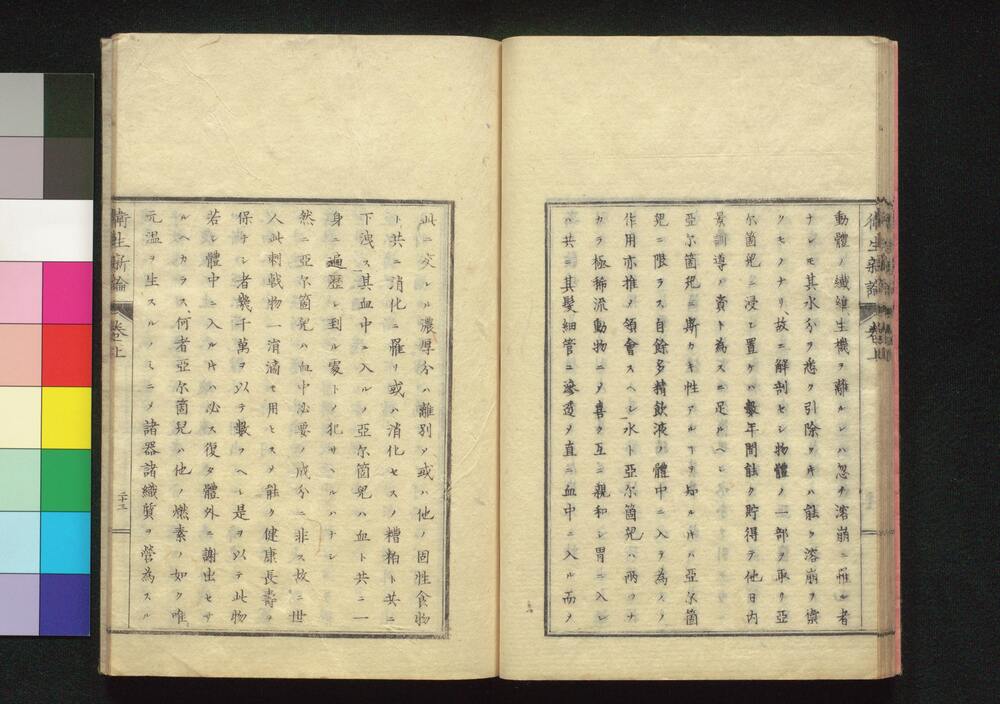 動體ノ纖維生機ヲ離ルレハ忽チ溶崩ニ罹ル者
ナレモ其水分ヲ悉ク引除クキハ能ク溶崩ヲ償
クモノナリ、故ニ解剖セシ物體ノ一部ヲ取リ亞
尓箇兒ニ浸シ置ケハ數年間能ク貯得テ他日内
景訓導ノ資ト為スニ足ルヘシ
亞尓箇兒ニ斯カル性アルヿヲ知ル片ハ亞尓箇
兒ニ限ラス自餘多精飲液ノ體中ニ入ヲ為スノ
作用亦推ノ領會スヘシ水ト亞尓箇兒ハ兩ツナ
カラ極稀流動物ニメ喜ク互ニ親和シ胃ニ入レ
ハ共ニ其髮細管ニ滲透メ直ニ血中ニ入ル而メ
此ニ交レル濃厚分ハ離別メ或ハ他ノ固性食物
ト共ニ消化ニ罹リ或ハ消化セスメ糟粕ト共ニ
下洩ス其血中ニ入ルノ亞尓箇兒ハ血ト共ニ一
身ニ遍歴シ到ル處トノ犯サヽルハナシ
然ニ亞尓箇兒ハ血中必要ノ成分ニ非ス故ニ世
人此刺戟物一滴モ用ヒスメ能ク健康長壽ヲ
保チシ者幾千萬ヲ以テ數フヘシ是ヲ以テ此物
若シ體中ニ入ル片ハ必ス復タ體外ニ謝出セサ
ルヘカラス、何者亞尓箇兒ハ他ノ燃素ノ如ク唯
元温ヲ生スルノミニメ諸器諸織質ヲ營為スル
衛生新論 卷之上
二十三